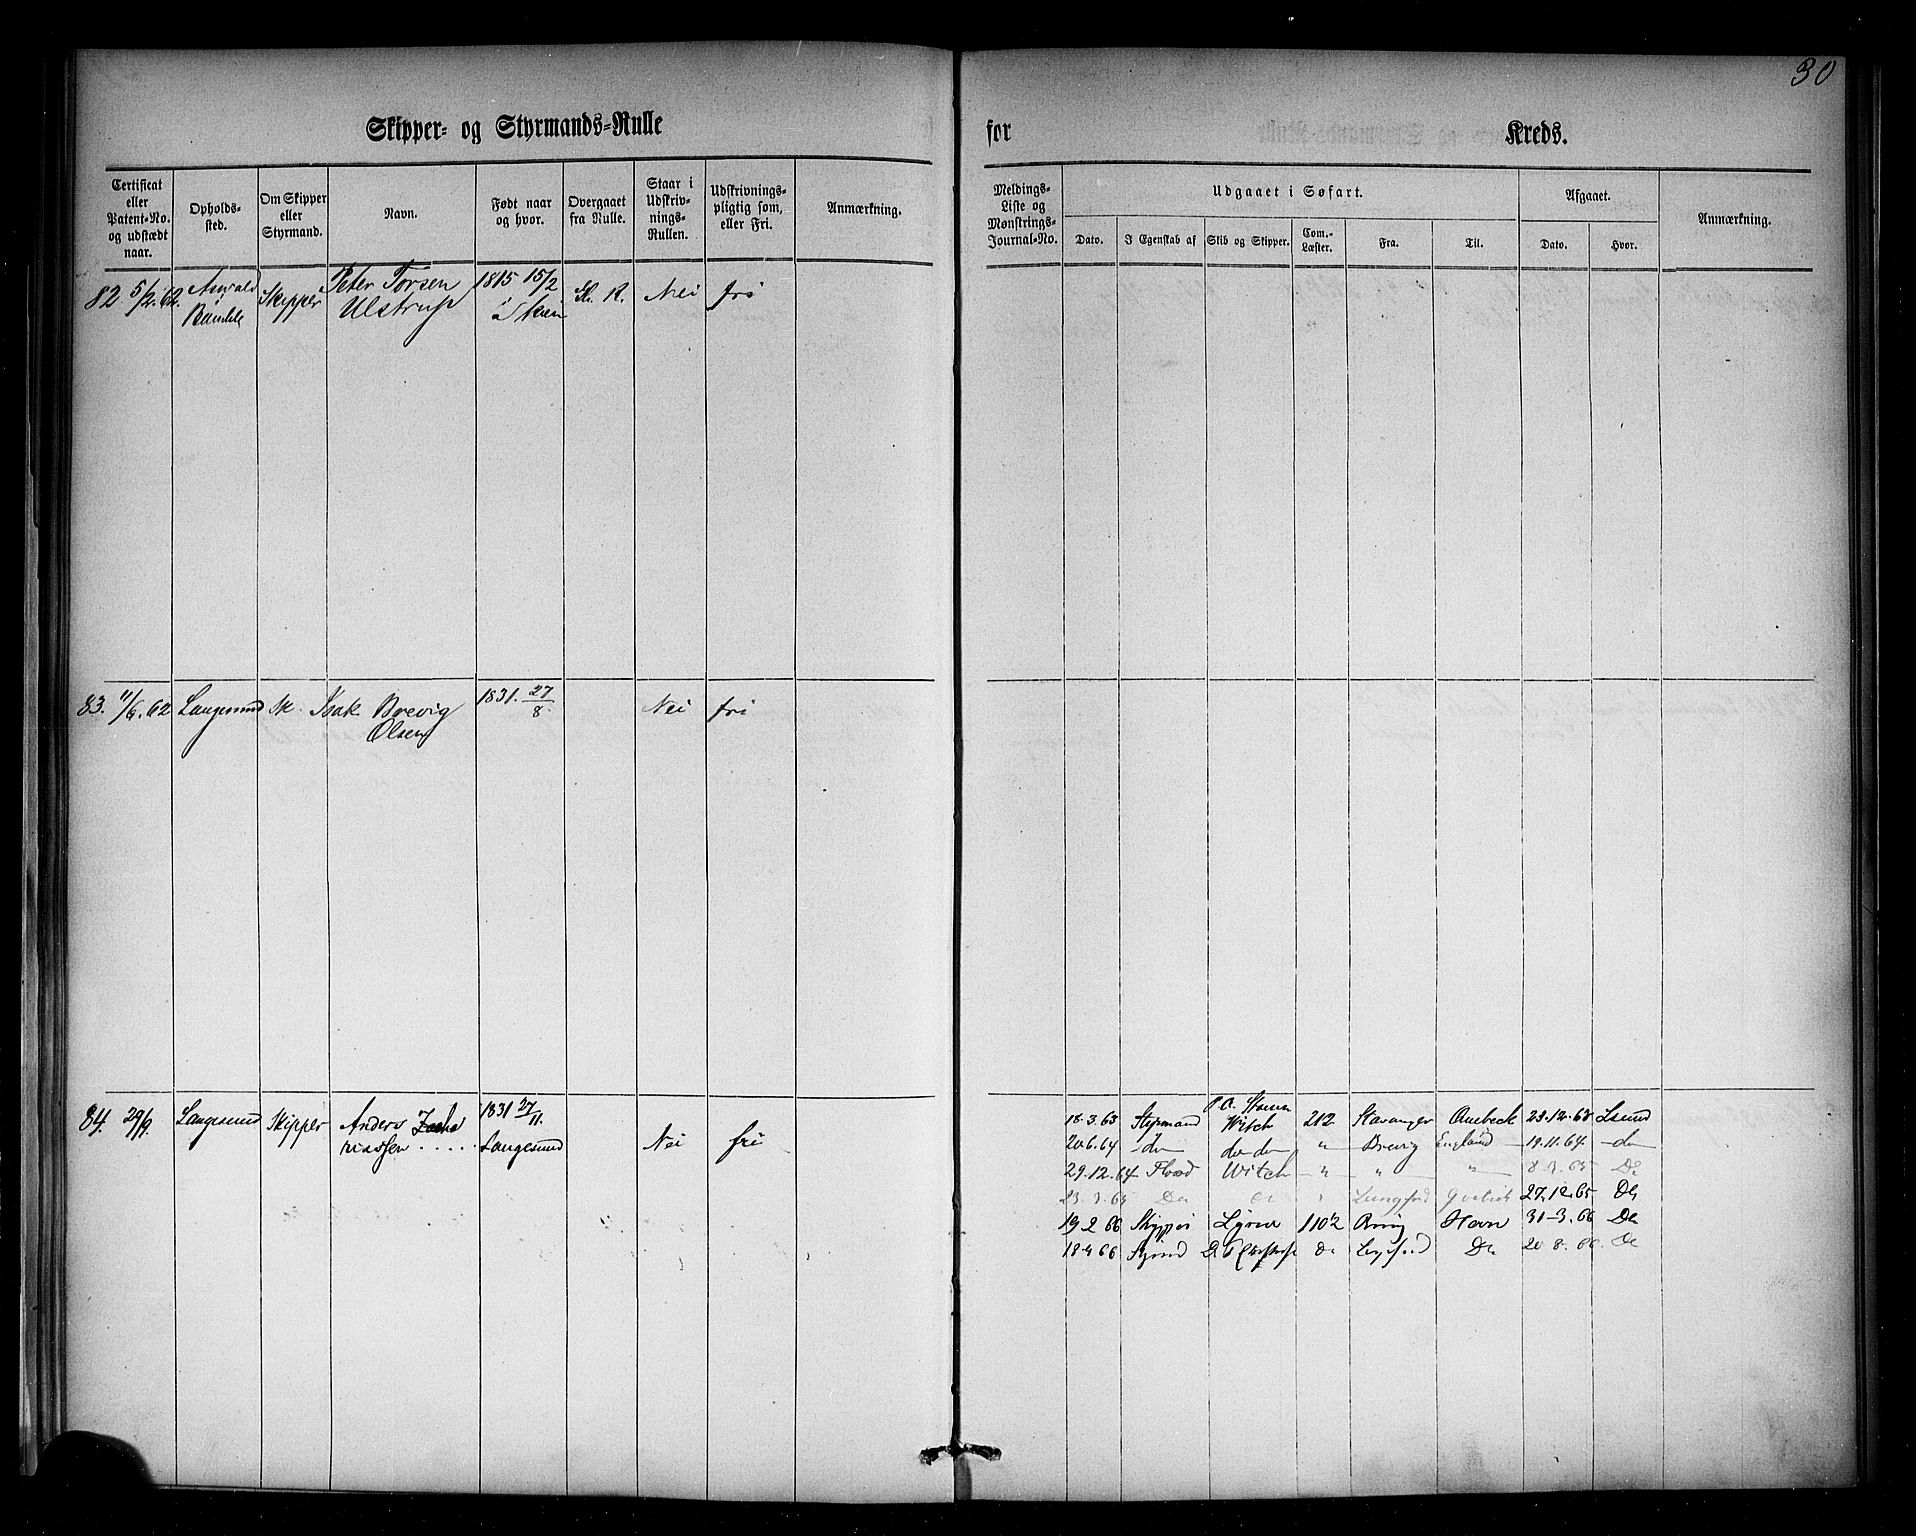 30
Skipper- og Styrmands-Rulle for Kreds.
Certificat eller Patent-No. og udstædt naar.
Opholds-sted.
Om Skipper eller Styrmand.
Navn.
Født naar og hvor.
Overgaaet fra Rulle.
Staar i Udskriv-nings-Rullen.
Udskrivnings-pligtig som, eller Fri.
Anmærkning.
Meldings-Liste og Mønstrings-Journal-No.
Udgaaet i Søfart.
Dato.
I Egenskab af
Skib og Skipper.
Com.-Læster.
Fra.
Til.
Afgaaet.
Dato.
Hvor.
Anmærkning.
82 5/2.62. Skipper Peter Torsen 1815 15/2 R. Nei fri
Bamble Ulstrup i Skien
83. 11/6.62 Langesund Sk. Isak Brevig 1831. 27/8. Nei fri
Olsen
84. 29/9. Langesund Skipper Anders Zacha 1831 27/11.
riassen . . . . Langesund Nei fri
18.3.63 Styrmand Witch 212 Stavanger 12.63 Lsund
20.6.64 do do do " Brevig England 19.11.64. do
29.12.64 Witch " " " 8.3.65 Do
23.3.65 Do Do " 27.12.65 Do
19 2 66 110½ Havn 31-3.66 Do
18 4 66 Do Do 20.8.66. Do